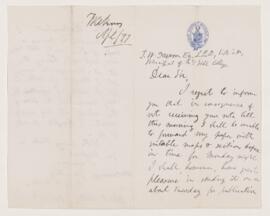 J. W. Dawson Esq. L.L.D.,
Principal of McGill College
Dear Sir,
I regret to inform
you that in consequence of
not receiving your note till
this morning, I shall be unable
to forward my paper with
suitable maps & section
in time for Monday night
I shall, however, have great
pleasure in sending it on or
about Tuesday for publication